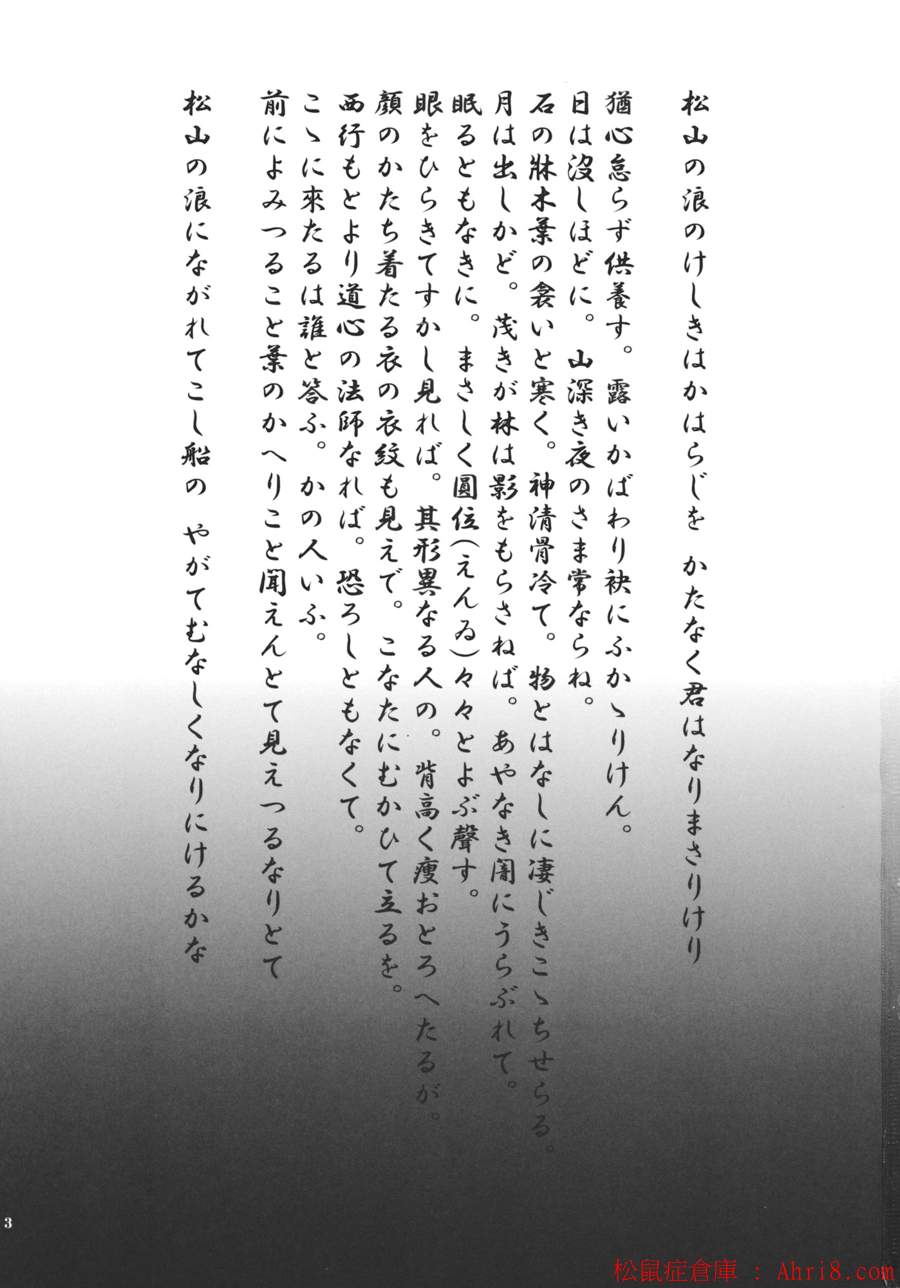 松山の浪のけしきはかはらじを　かたなく君はなりまさりけり
猶心怠らず供養す。露いかばわり袂にふかゝりけん。
日は沒しほどに。山深き夜のさま常ならね。
石の牀木葉の衾いと寒く。神清骨冷て。物とはなしに凄じきこゝちせらる。
月は出しかど。茂きが林は影をもらさねば。あやなき闇にうらぶれて。
眠るともなきに。まさしく圓位(えんゐ)々々とよぶ聲す。
眼をひらきてすかし見れば。其形異なる人の。背高く瘦おとろへたるが。
顏のかたち着たる衣の衣紋も見えで。こなたにむかひて立るを。
西行もとより道心の法師なれば。恐ろしともなくて。
こゝに來たるは誰と答ふ。かの人いふ。
前によみつること葉のかへりこと聞えんとて見えつるなりとて
松山の浪にながれてこし船の　やがてむなしくなりにけるかな
3
松鼠症倉庫 : Ahri8.com